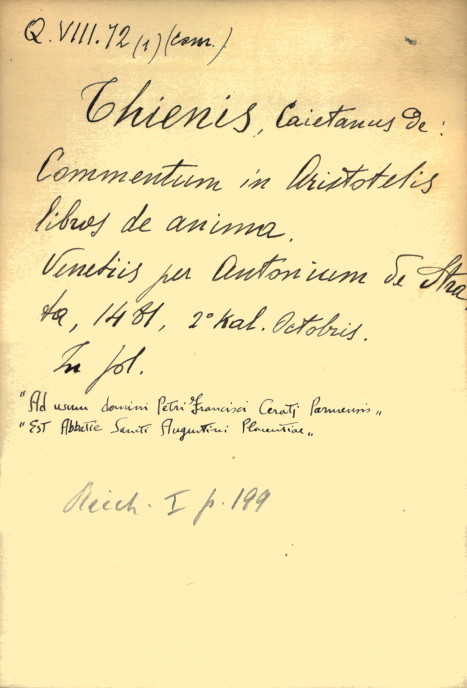 Q. VIII. 72 (1) (com.)
Thienis, Caietanus de:
Commentum in Aristotelis
libros de anima.
Venetiis per Antonium de Stra
ta, 1481, 2° Kal. Octobris.
In fol.
"Ad usum domini Petri Francisci Cerati Parmensis„
"Est Abbatie Sancti Augustini Placentiae„
Reich. I p. 199